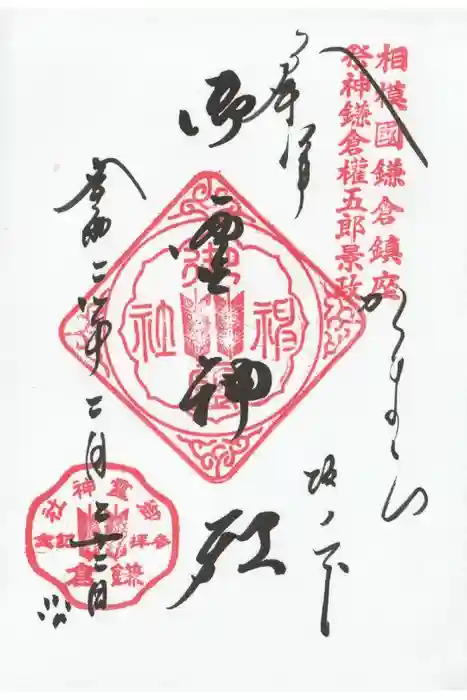 相模國鎌倉鎮座
祭神鎌倉權五郎景政
奉拝
かまくら
坂ノ下
御霊神社
令和二年二月二十二日
御靈神社
御霊神社
參拝記念
鎌倉